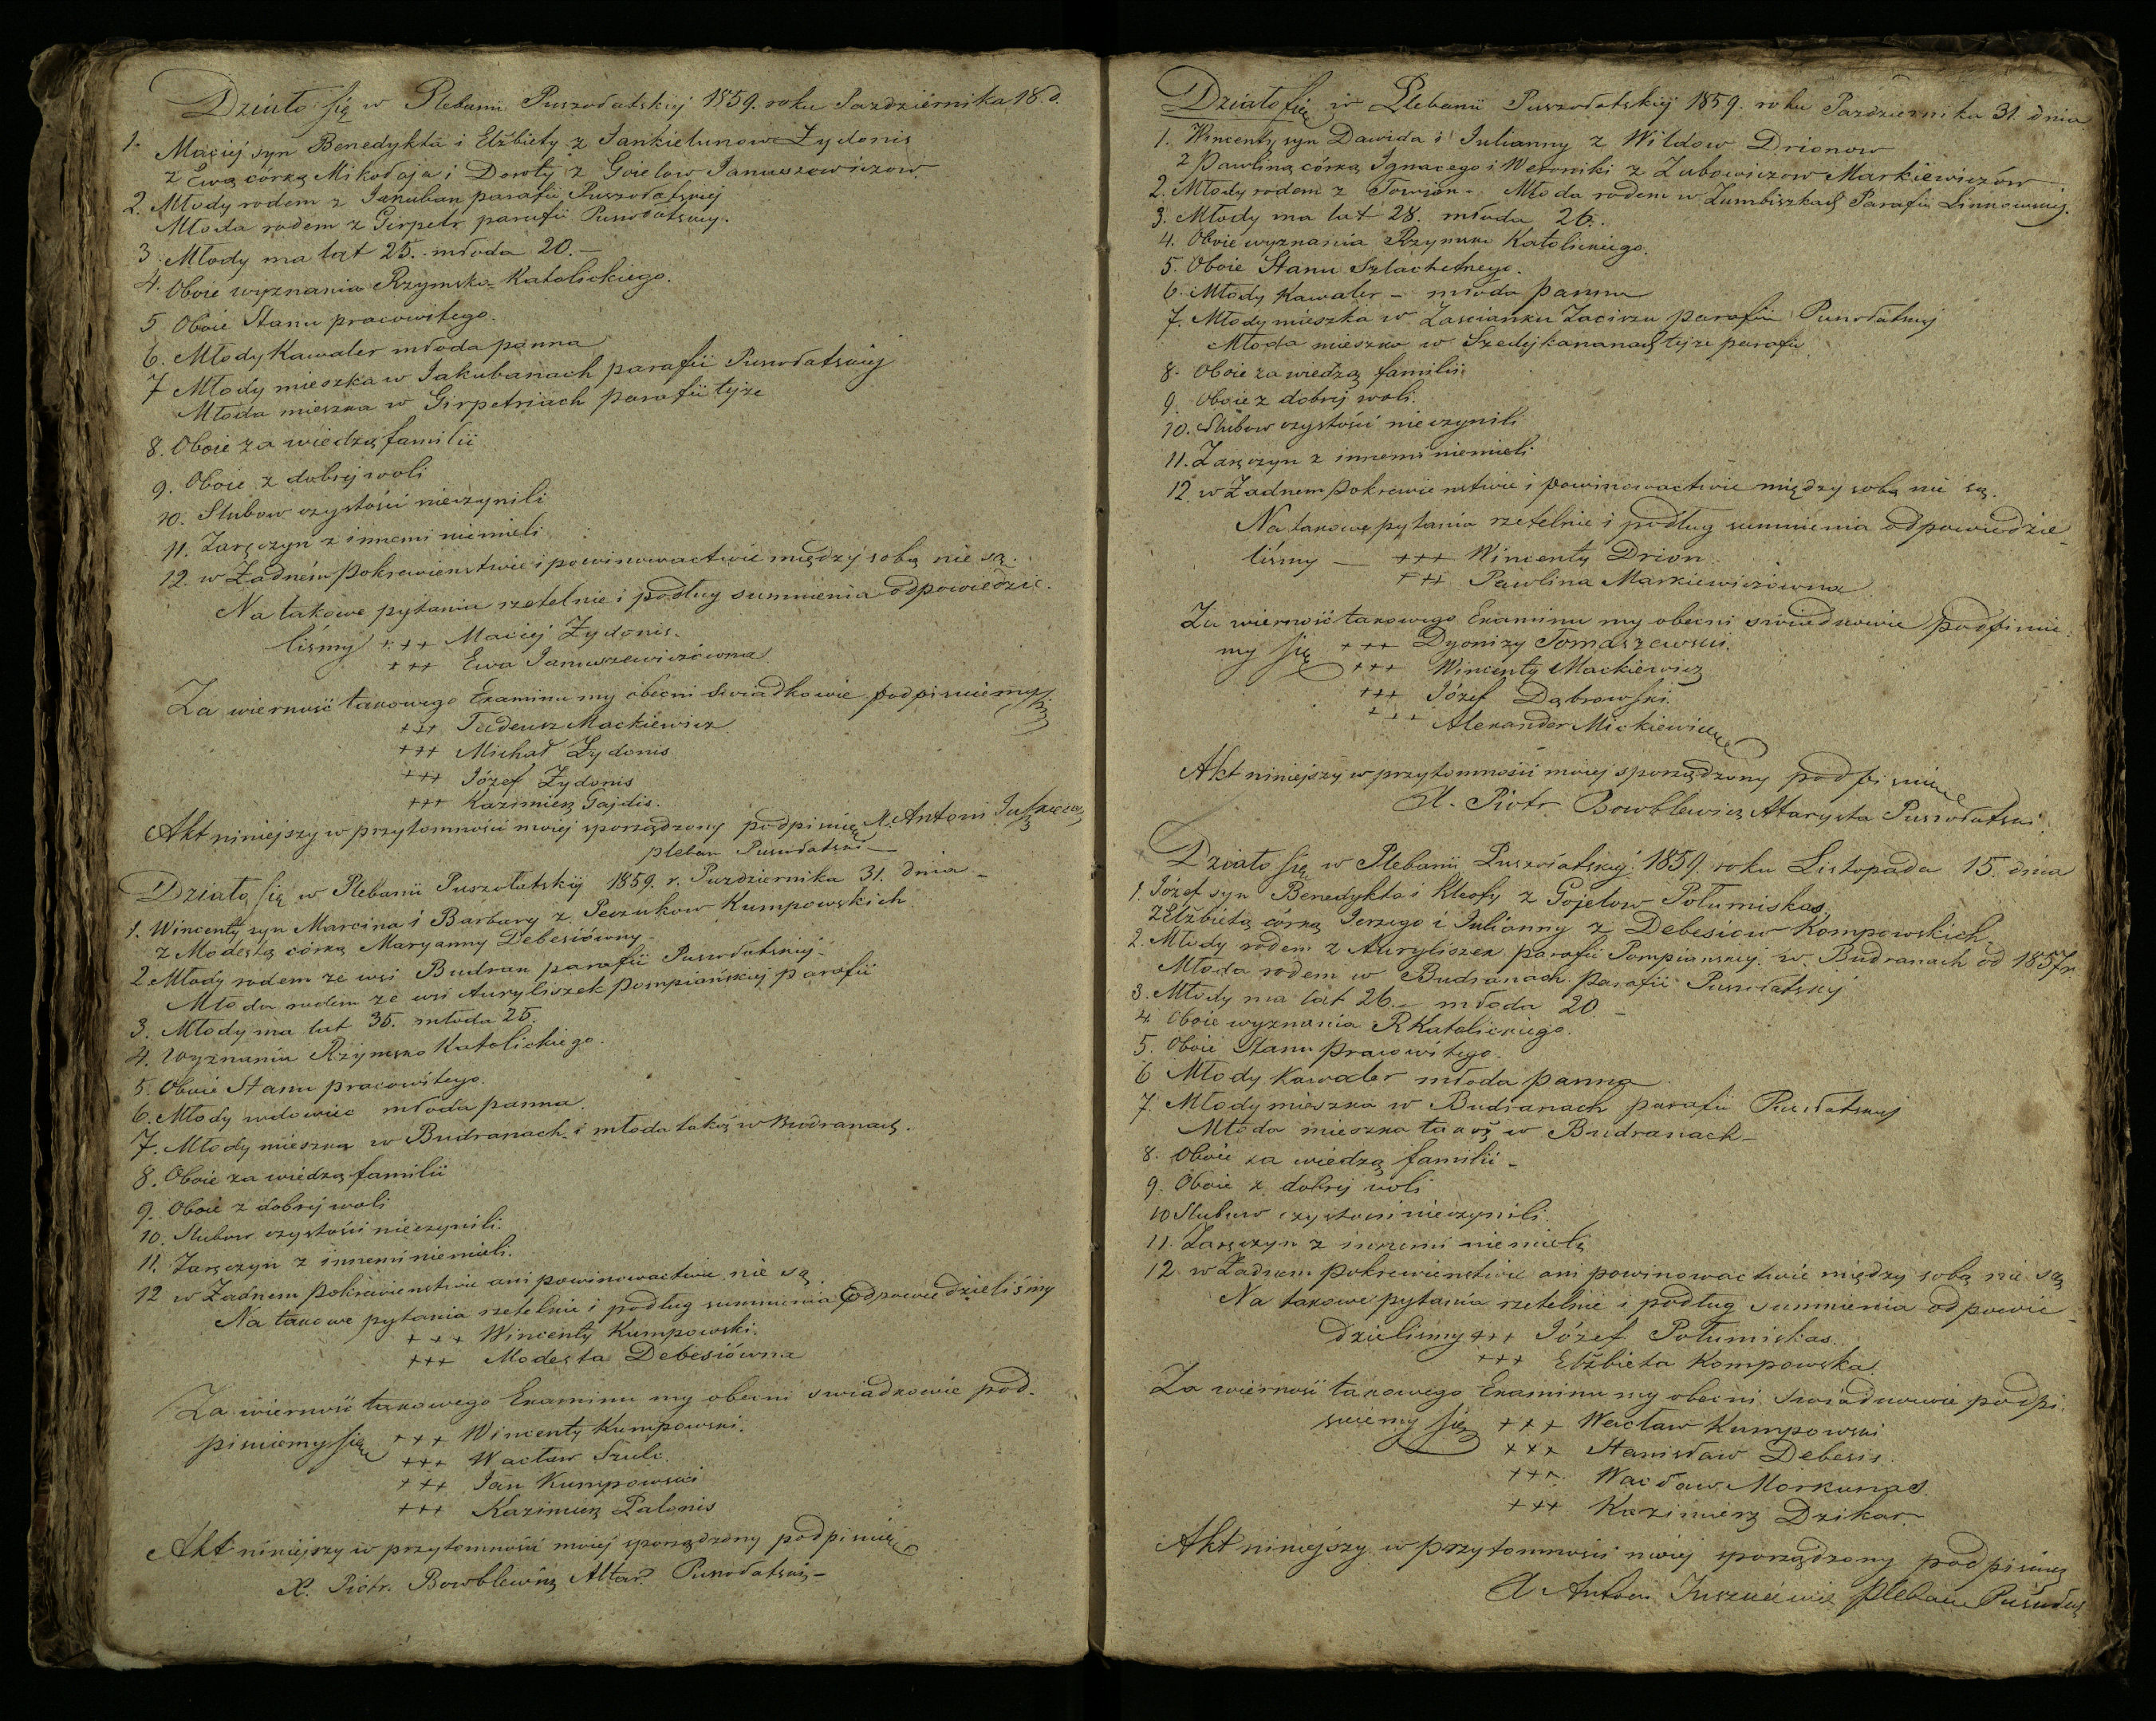 Działo się w Plebanii Puszołatskiej 1859. roku Pazdziérnika 18 d.
1. Maciéj syn Benedykta i Elżbiety z Jankielunow Żydonis
z Ewą córką Mikołaja i Doroty z Goielow Januszewiczow
2. Młody rodem z Jakuban parafii Puszołatskiej
Młoda rodem z Girpetr parafii Puszołatskiej.
3. Młody ma lat 25. młoda 20. —
4. Oboie wyznania Rzymsko-Katolickiego.
5 Oboie Stanu pracowitego.
6. Młody Kawaler młoda panna
7 Młody mieszka w Jakubanach parafii Puszołatskiej
Młoda mieszka w Girpetriach parafii tejże
8. Oboie za wiedzą familii
9. Oboie z dobrej woli
10. Slubow czystości nieczynili
11. Zaręczyn z innemi niemieli
12. w Żadném pokrewieństwie i powinowactwie między sobą nie są.
Na takowe pytania rzetelnie i podług summienia odpowiedzie-
liśmy +++ Maciej Żydonis.
+++ Ewa Januszewiczówna
Za wierność takowego Examinu my obecni swiadkowie podpisuiemy się
+++ Tadeusz Mackiewicz
+++ Michał Żydonis
+++ Józef Żydonis
+++ Kazimierz Gajdis.
Akt niniejszy w przytomności mojej sporządzony podpisuię X. Antoni Juszkiewicz
pleban Puszołatski —
Działo się w Plebanii Puszołatskiej 1859. r. Pazdziernika 31. dnia —
1. Wincenty syn Marcina i Barbary z Peczukow Kumpowskich
z Modestą córką Maryanny Debesiówny
2 Młody rodem ze wsi Budran parafii Puszołatskiej -
Młoda rodem ze wsi Auryliszek pompiańskiej parafii
3. Młody ma lat 35. młoda 25.
4. Wyznania Rzymsko Katolickiego.
5. Oboie Stanu pracowitego.
6. Młody wdowiec młoda panna.
7. Młody mieszka w Budranach i młoda takoż w Budranach.
8. Oboie za wiedzą familii
9. Oboie z dobrej woli
10. Slubow czystości nieczynili.
11. Zaręczyn z innemi niemieli.
12 w Żadnem pokrewieństwie ani powinowactwie nie są.
Na takowe pytania rzetelnie i podług summienia odpowiedzieliśmy
+++ Wincenty Kumpowski.
+++ Modesta Debesiówna
Za wierność takowego Examinu my obecni swiadkowie pod-
pisuiemy się +++ Wincenty Kumpowski.
+++ Wacław Szulc.
+++ Jan Kumpowski
+++ Kazimierz Palonis
Akt niniejszy w przytomności mojej sporządzony podpisuię
X. Piotr Bowblewicz Altar. Puszołatski —
Działo się w Plebanii Puszołatskiej 1859. roku Pazdziernika 31. dnia
1. Wincenty syn Dawida i Julianny z Wildow Drionow
z Pawliną córką Ignacego i Weroniki z Zubowiczow Markiewiczów
2. Młody rodem z Towian. Młoda rodem w Zumbiszkach Parafii Linkowskiej.
3. Młody ma lat 28. młoda 26.
4. Oboie wyznania Rzymsko Katolickiego.
5. Oboie Stanu Szlachetnego.
6. Młody Kawaler — młoda panna
7. Młody mieszka w Zascianku Zaciszu parafii Puszołatskiej
Młoda mieszka w Szedejkanach tejże parafii
8. Oboie za wiedzą familii
9. Oboie z dobrej woli.
10. Slubow czystości nieczynili
11. Zaręczyn z innemi niemieli
12. w Żadnem pokrewienstwie i powinowactwie między sobą nie są.
Na takowe pytania rzetelnie i podług summienia odpowiedzie-
liśmy — +++ Wincenty Drion
+++ Pawlina Markiewiczówna
Za wierność takowego Examinu my obecni swiadkowie podpisuie-
my się +++ Dyonizy Tomaszewski.
+++ Wincenty Mackiewicz
+++ Józef Dąbrowski.
+++ Alexander Mickiewicz
Akt niniejszy w przytomności mojej sporządzony podpisuię
X. Piotr Bowblewicz Altarysta Puszołatski.
Działo się w Plebanii Puszołatskiej 1859. roku Listopada 15. dnia
1. Józef syn Benedykta i Kleofy z Gojelow Połumiskas,
z Elżbietą córką Jerzego i Julianny z Debesiow Kompowskich.
2. Młody rodem z Auryliszek parafii Pompianskiej. w Budranach od 1857 r.
Młoda rodem w Budranach Parafii Puszołatskiej
3. Młody ma lat 26. — młoda 20. —
4. Oboie wyznania R Katolickiego.
5. Oboie Stanu pracowitego.
6 Młody Kawaler młoda panna
7. Młody mieszka w Budranach parafii Puszołatskiej
Młoda mieszka takoż w Budranach —
8. Oboie za wiedzą familii —
9. Oboie z dobrej woli
10 Slubow czystości nieczynili.
11. Zaręczyn z innemi niemieli
12 w Żadnem pokrewieństwie ani powinowactwie między sobą nie są
Na takowe pytania rzetelnie i podług summienia odpowie-
dzielismy +++ Józef Połumiskas.
+++ Elżbieta Kompowska.
Za wierność takowego Examinu my obecni swiadkowie podpi-
suiemy się +++ Wacław Kumpowski
+++ Stanisław Debesis.
+++ Wacław Morkunas.
+++ Kazimierz Dzikar.
Akt niniejszy w przytomności mojej sporządzony podpisuię
X Antoni Juszkiewicz pleban